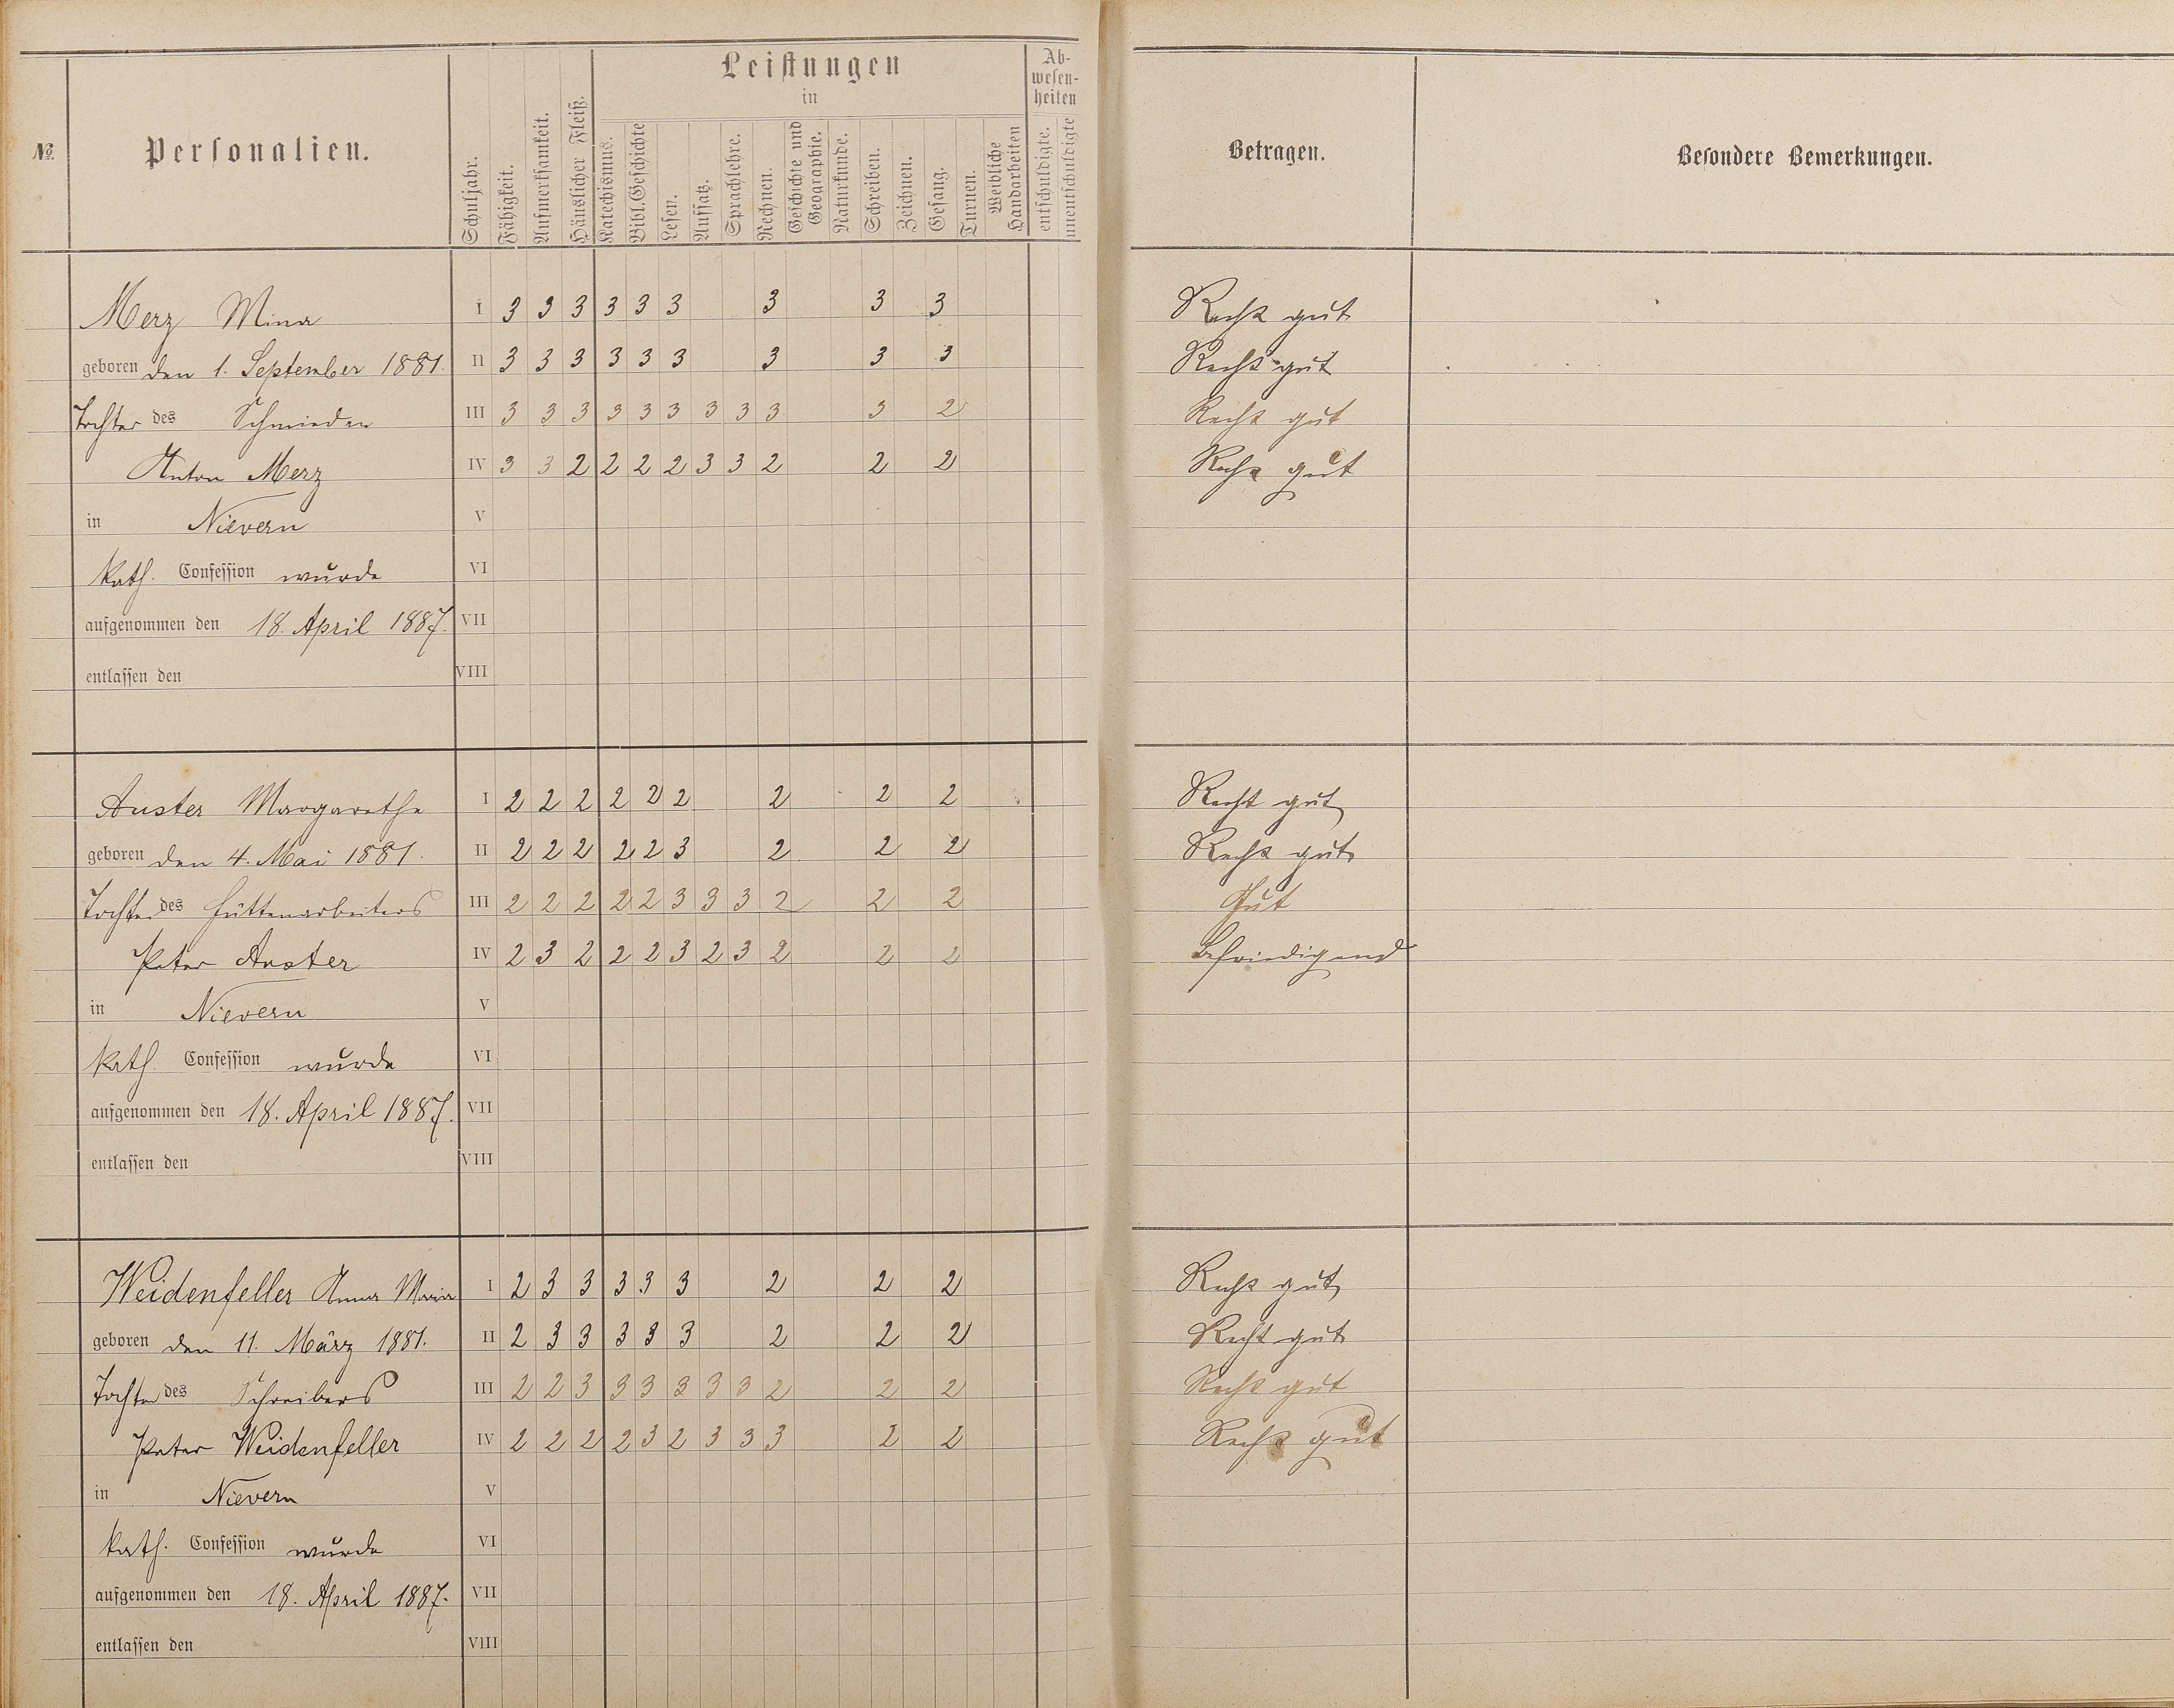 Leistungen
in
Ab-
wesen-
heiten
№.
Personalien.
Schuljahr.
Fähigkeit.
Aufmerksamkeit.
Häuslicher Fleiß.
Katechismus.
Bibl. Geschichte
Lesen.
Aufsatz.
Sprachlehre.
Rechnen.
Geschichte und
Geographie.
Naturkunde.
Schreiben.
Zeichnen.
Gesang.
Turnen.
Weibliche
Handarbeiten
entschuldigte.
unentschuldigte
Betragen.
Besondere Bemerkungen.
Merz Mina I 3 3 3 3 3 3 3 3 3 Recht gut
geboren den 1. September 1881. II 3 3 3 3 3 3 3 3 3 Recht gut
Tochter des Schmieden III 3 3 3 3 3 3 3 3 3 3 2 Recht gut
Anton Merz IV 3 3 2 2 2 2 3 3 2 2 2 Recht gut
in Nievern V
kath. Confession wurde VI
aufgenommen den 18. April 1887. VII
entlassen den VIII
Auster Margarethe I 2 2 2 2 2 2 2 2 2 Recht gut
geboren den 4. Mai 1881. II 2 2 2 2 2 3 2 2 2 Recht gut
Tochter des Hüttenarbeiters III 2 2 2 2 2 3 3 3 2 2 2 Gut
Peter Auster IV 2 3 2 2 2 3 2 3 2 2 2 Befriedigend
in Nievern V
kath. Confession wurde VI
aufgenommen den 18. April 1887. VII
entlassen den VIII
Weidenfeller Anna Maria I 2 3 3 3 3 3 2 2 2 Recht gut
geboren den 11. März 1881. II 2 3 3 3 3 3 2 2 2 Recht gut
Tochter des Schreibers III 2 2 3 3 3 3 3 3 2 2 2 Recht gut
Peter Weidenfeller IV 2 2 2 2 3 2 3 3 3 2 2 Recht gut
in Nievern V
kath. Confession wurde VI
aufgenommen den 18. April 1887. VII
entlassen den VIII